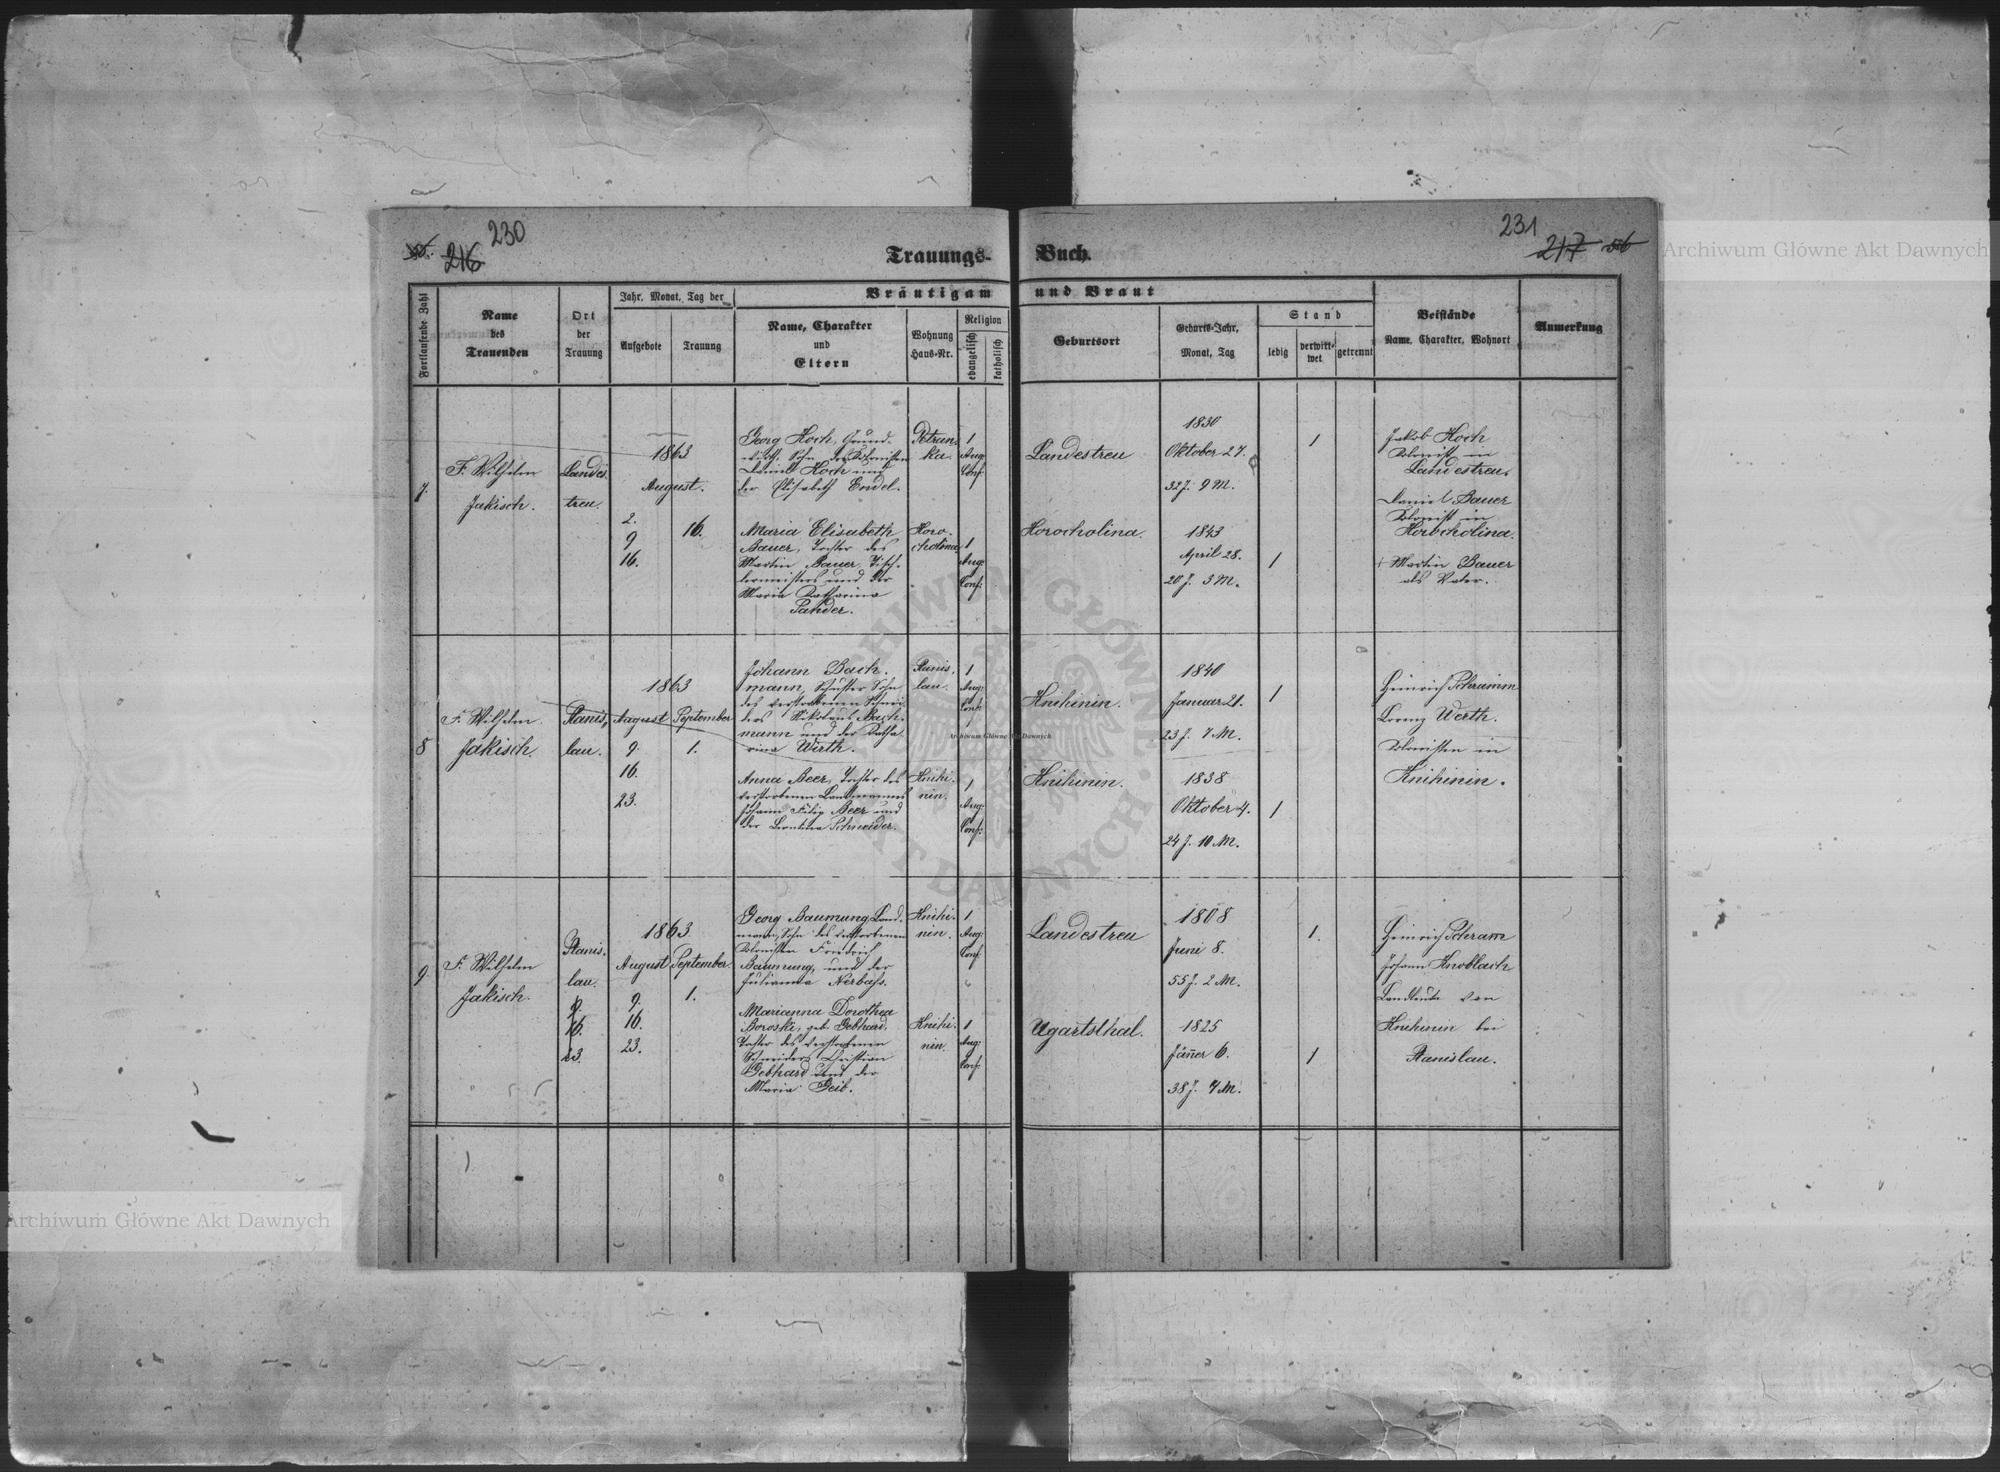 230
216
Trauungs-
Fortlaufende Zahl
Name
des
Trauenden
Ort
der
Trauung
Jahr, Monat, Tag der
Aufgebote
Trauung
Bräutigam
Name, Charakter
und
Eltern
Wohnung
Haus-Nr.
Religion
evangelisch
katholisch
7.
F. Wilhelm
Jakisch.
Landes
treu.
1863
August.
2.
9
16.
16.
Georg Hoch, Grund-
wirth, Sohn des Kolonisten
Daniel Hoch und
der Elisabeth Endel.
Petran-
ka.
1
Aug:
Conf:
Maria Elisabeth
Bauer, Tochter des
Martin Bauer, Tisch-
lermeisters und der
Maria Katharina
Sander.
Horo-
cholina
1
Aug:
Conf:
8
F. Wilhelm
Jakisch.
Stanis-
lau.
1863
August September
9.
16.
23.
1.
Johann Bach-
mann, Schuster, Sohn
des verstorbenen Schnei-
ders Nikolaus Bach-
mann und der Katha-
rina Wirth.
Stanis-
lau.
1
Aug:
Conf:
Anna Beer, Tochter des
verstorbenen Landmannes
Johann Filip Beer und
der Schneider.
Knihi-
nin.
1
Aug:
Conf:
9
F. Wilhelm
Jakisch.
Stanis-
lau.
9.
16.
23.
1863
August September
9.
16.
23.
1.
Georg Baumung, Land-
mann, Sohn des verstorbenen
Kolonisten Friedrich
Baumung, und der
Julianna Nerbass.
Knihi-
nin.
1
Aug:
Conf
Marianna Dorothea
Boroski, geb. Gebhard,
Tochter des verstorbenen
Schneiders Christian
Gebhard und der
Maria Geib.
Knihi-
nin.
1
Aug:
Conf:
231
217 56
Buch.
und Braut
Geburtsort
Geburts-Jahr,
Monat, Tag
Stand
ledig
verwitt-
wet
getrennt
Beistände
Name, Charakter, Wohnort
Anmerkung
Landestreu
1830
Oktober 27.
32 J. 9 M.
1
Jakob Hoch
Kolonist in
Landestreu.
Daniel Bauer
Kolonist in
Horocholina.
Horocholina.
1843
April 28.
20 J. 3 M.
1
Martin Bauer
als Vater.
Knihinin.
1840
Januar 21.
23 J. 7 M.
1
Heinrich Schramm
Lorenz Werth.
Kolonisten in
Knihinin.
Knihinin.
1838
Oktober 4.
24 J. 10 M.
1
Landestreu
1808
Juni 8.
55 J. 2 M.
1.
Heinrich Schram
Johann Knoblach
Landleute von
Knihinin bei
Stanislau.
Ugartsthal.
1825
Jäner 6.
38 J. 7 M.
1
Archiwum Główne Akt Dawnych
Archiwum Główne Akt Dawnych
Archiwum Główne Akt Dawnych
ARCHIWUM GŁÓWNE
AKT DAWNYCH